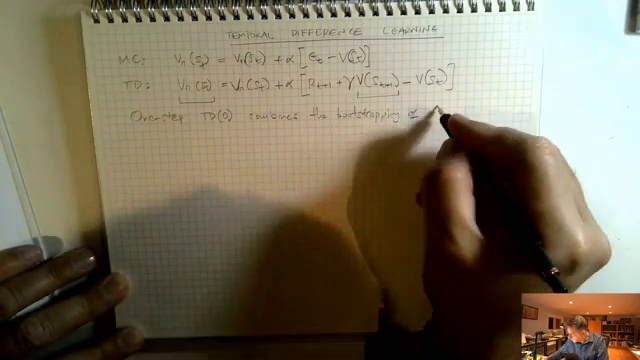 TEMPORAL DIFFERENCE LEARNING
MC: Vπ(St) = Vπ(St) + α[Gt − V(St)]
TD: Vπ(St) = Vπ(St) + α[Rt+1 + γV(St+1) − V(St)]
One-step TD(0) combines the bootstrapping of